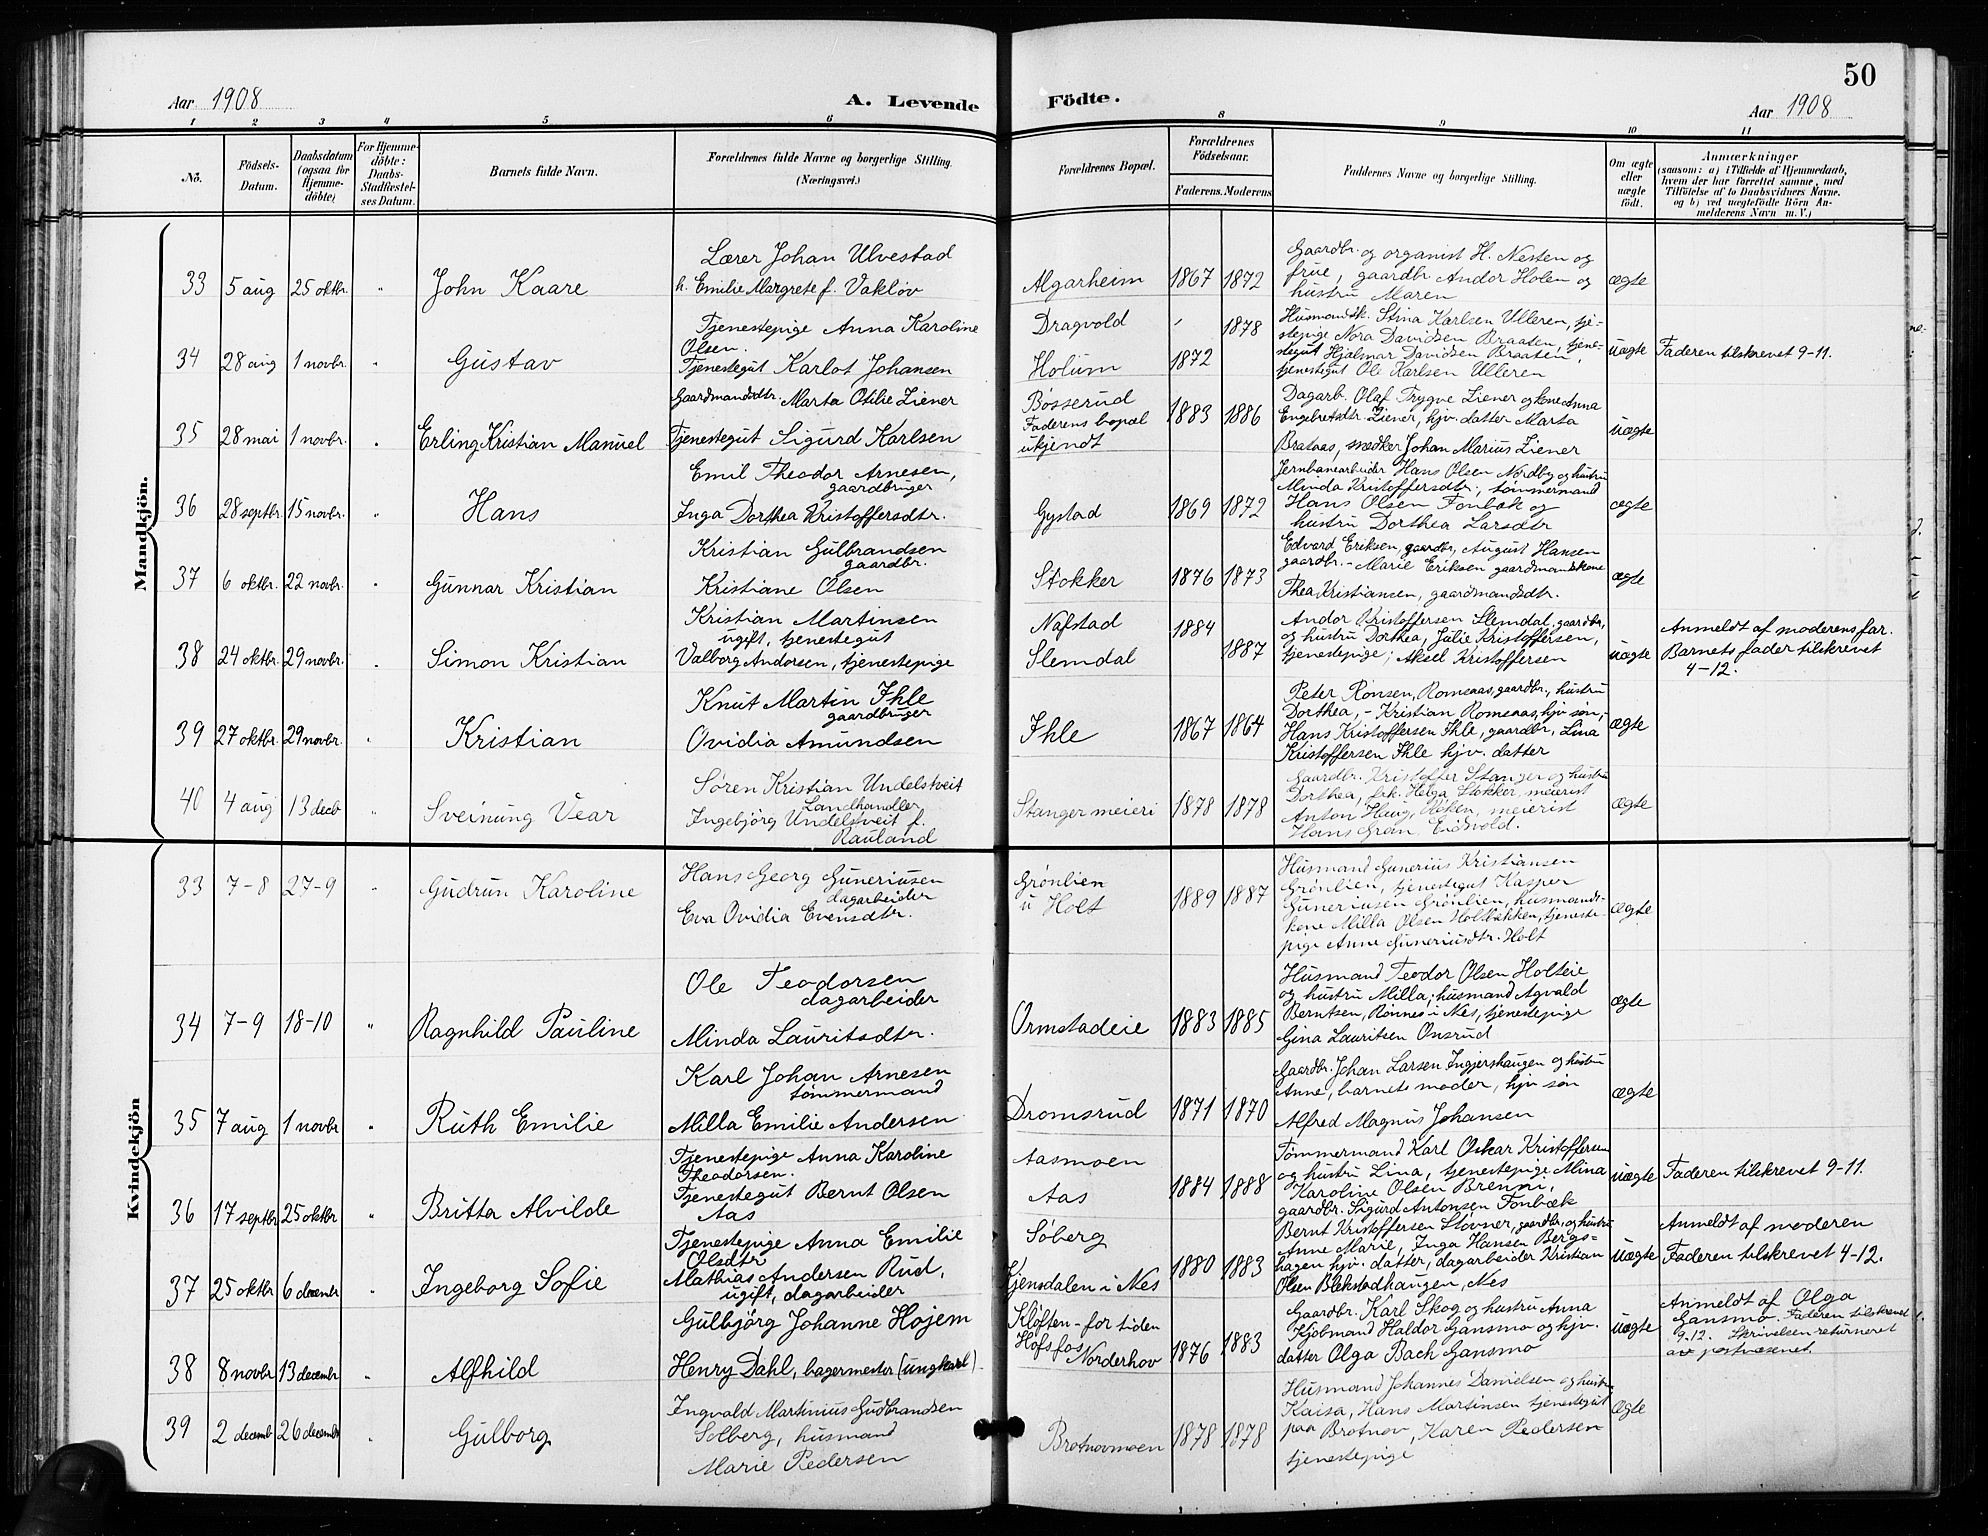 50
Aar 1908
A. Levende
Födte.
Aar 1908
1 2 3 4 5 6 8 9 10 11
No.
Födsels-
Datum.
Daabsdatum
(ogsaa for
Hjemme-
döbte)
For Hjemme-
döbte:
Daabs-
Stadfæstel-
ses Datum.
Barnets fulde Navn.
Forældrenes fulde Navne og borgerlige Stilling.
(Næringsvei.)
Forældrenes Bopæl.
Forældrenes
Födselsaar.
Faderens. Moderens.
Faddernes Navne og borgerlige Stilling.
Om ægte
eller
uægte
födt.
Anmærkninger
(saasom: a) i Tilfælde af Hjemmedaab,
hvem der har forrettet samme, med
Tilföielse af to Daabsvidners Navne.
og b) ved uægtefödte Börn An-
melderens Navn m. V.)
Mandkjön.
33 5 aug 25 oktbr. " John Kaare
Lærer Johan Ulvestad
h. Emilie Margrete f. Vakløv
Algarheim 1867 1872
Gaardbr. og organist H. Nesten og
frue, gaardbr Andor Holen og
hustru Maren
ægte
34 28 aug 1 novbr. " Gustav
Tjenestepige Anna Karoline
Olsen.
Tjenestegut Karlot Johansen
Dragvold ' 1878
Holum 1872
Husmandsk. Stina Karlsen Ulleren, tje-
stepige Nora Davidsen Braaten, tjene-
stegut Hjalmar Davidsen Braaten,
tjenestegut Ole Karlsen Ulleren
uægte Faderen tilskrevet 9-11.
35 28 mai 1 novbr. " Erling Kristian Manuel
Gaardmandsdtr. Marta Otilie Ziener
Tjenestegut Sigurd Karlsen
Bosserud
Faderens bopæl
ukjendt
1883 1886
Dagarb. Olaf Trygve Ziener og kone Anna
Engebretsdtr. Ziener, hjv. datter Marta
Brataas, snedker Johan Marius Ziener
uægte
36 28 septbr. 15 novbr. " Hans
Emil Theodor Arnesen,
gaardbruger
Inga Dorthea Kristoffersdtr.
Gystad 1869 1872
Jernbanearbeider Hans Olsen Nordby og hustru
Minda Kristoffersdtr., tømmermand
Hans Olsen Fonbæk og
hustru Dorthea Larsdtr
ægte
37 6 oktbr. 22 novbr. " Gunnar Kristian
Kristian Gulbrandsen
gaardbr.
Kristiane Olsen
Stokker 1876 1873
Edvard Eriksen, gaardbr, August Hansen
gaardbr. - Marie Eriksen gaardmandskone
Thea Kristiansen, gaardmandsdtr.
ægte
38 24 oktbr. 29 novbr. " Simon Kristian
Kristian Martinsen
ugift, tjenestegut
Valborg Andorsen, tjenestepige
Nafstad 1884
Slemdal 1887
Andor Kristoffersen Slemdal, gaardbr,
og hustru Dorthea, Julie Kristoffersen,
tjenestepige; Aksel Kristoffersen
uægte
Anmeldt af moderens far.
Barnets fader tilskrevet
4-12.
39 27 oktbr. 29 novbr. " Kristian
Knut Martin Ihle
gaardbruger
Ovidia Amundsen
Ihle 1867 1864
Peter Ronsen, Romsaas, gaardbr., hustru
Dorthea, - Kristian Romsaas, hjv. søn, -
Hans Kristoffersen Ihle, gaardbr, Lina
Kristoffersen Ihle hjv. datter
ægte
40 4 aug 13 decb " Sveinung Vear
Søren Kristian Undelstveit
Landhandler
Ingebjörg Undelstveit f.
Rauland
Stanger meieri 1878 1878
Gaardbr. Kristoffer Stanger og hustru
Dorthea, frk. Helga Stokker, meierist
Anton Haug, Røken, meierist
Hans Gran, Eidsvold.
ægte
Kvindekjön
33 7-8 27-9 " Gudrun Karoline
Hans Georg Guneriusen
dagarbeider
Eva Ovidia Evensdtr.
Grønlien
u Holt
1889 1887
Husmand Gunerius Kristiansen
Grønlien, tjenestegut Kasper
Guneriusen Grønlien, husmands-
kone Milla Olsen Holtbakken, tjeneste-
pige Anne Guneriusdtr. Holt
ægte
34 7-9 18-10 " Ragnhild Pauline
Ole Teodorsen
dagarbeider
Minda Lauritsdtr.
Ormstadeie 1883 1885
Husmand Teodor Olsen Holteie
og hustru Milla; husmand Agvald
Berntsen, Rønnes i Nes, tjenestepige
Gina Lauritsen Onsrud
ægte
35 7 aug 1 novbr " Ruth Emilie
Karl Johan Arnesen
tømmermand
Milla Emilie Andersen
Dromsrud 1871 1870
Gaardbr. Johan Larsen Ingjershaugen og hustru
Anne, barnets moder, hjv søn
Alfred Magnus Johansen
ægte
36 17 septbr 25 oktbr " Britta Alvilde
Tjenestepige Anna Karoline
Theodorsen.
Tjenestegut Bernt Olsen
Aas
Aasmoen
Aas
1884 1888
Tømmermand Karl Oskar Kristoffersen
og hustru Lina, tjenestepige Mina
Karoline Olsen Brenni,
gaardbr. Sigurd Antonsen Fonbæk
uægte Faderen tilskrevet 9-11.
37 25 oktbr 6 decembr " Ingeborg Sofie
Tjenestepige Anna Emilie
Olsdtr
Mathias Andersen Rud,
ugift, dagarbeider
Søberg
Kjensdalen i Nes
1880 1883
Bernt Kristoffersen Støvner, gaardbr, og hustru
Anne Marie, Inga Hansen Bergs-
hagen hjv. datter, dagarbeider Kristian
Olsen Blekstadhaugen, Nes
uægte
Anmeldt af moderen
Faderen tilskrevet 4-12.
38 8 novbr 13 decembr " Alfhild
Gulbjörg Johanne Hojem
Henry Dahl, bagermester (ungkarl)
Kløften - for tiden
Høfsfos
Norderhov
1876 1883
Gaardbr. Karl Skog og hustru Anna
Kjøbmand Haldor Gansmo og hjv.
datter Olga Bach Gansmo
uægte
Anmeldt af Olga
Gansmo. Faderen tilskrevet
9-12. Skrivelsen returneret
av postvæsenet.
39 2 decemb 26 decembr " Gulborg
Ingvald Martinius Gudbrandsen
Solberg, husmand
Marie Pedersen
Brotnovmoen 1878 1878
Husmand Johannes Danielsen og hustru
Kaisa, Hans Martinsen tjenestegut
paa Brotnov, Karen Pedersen
tjenestepige
ægte